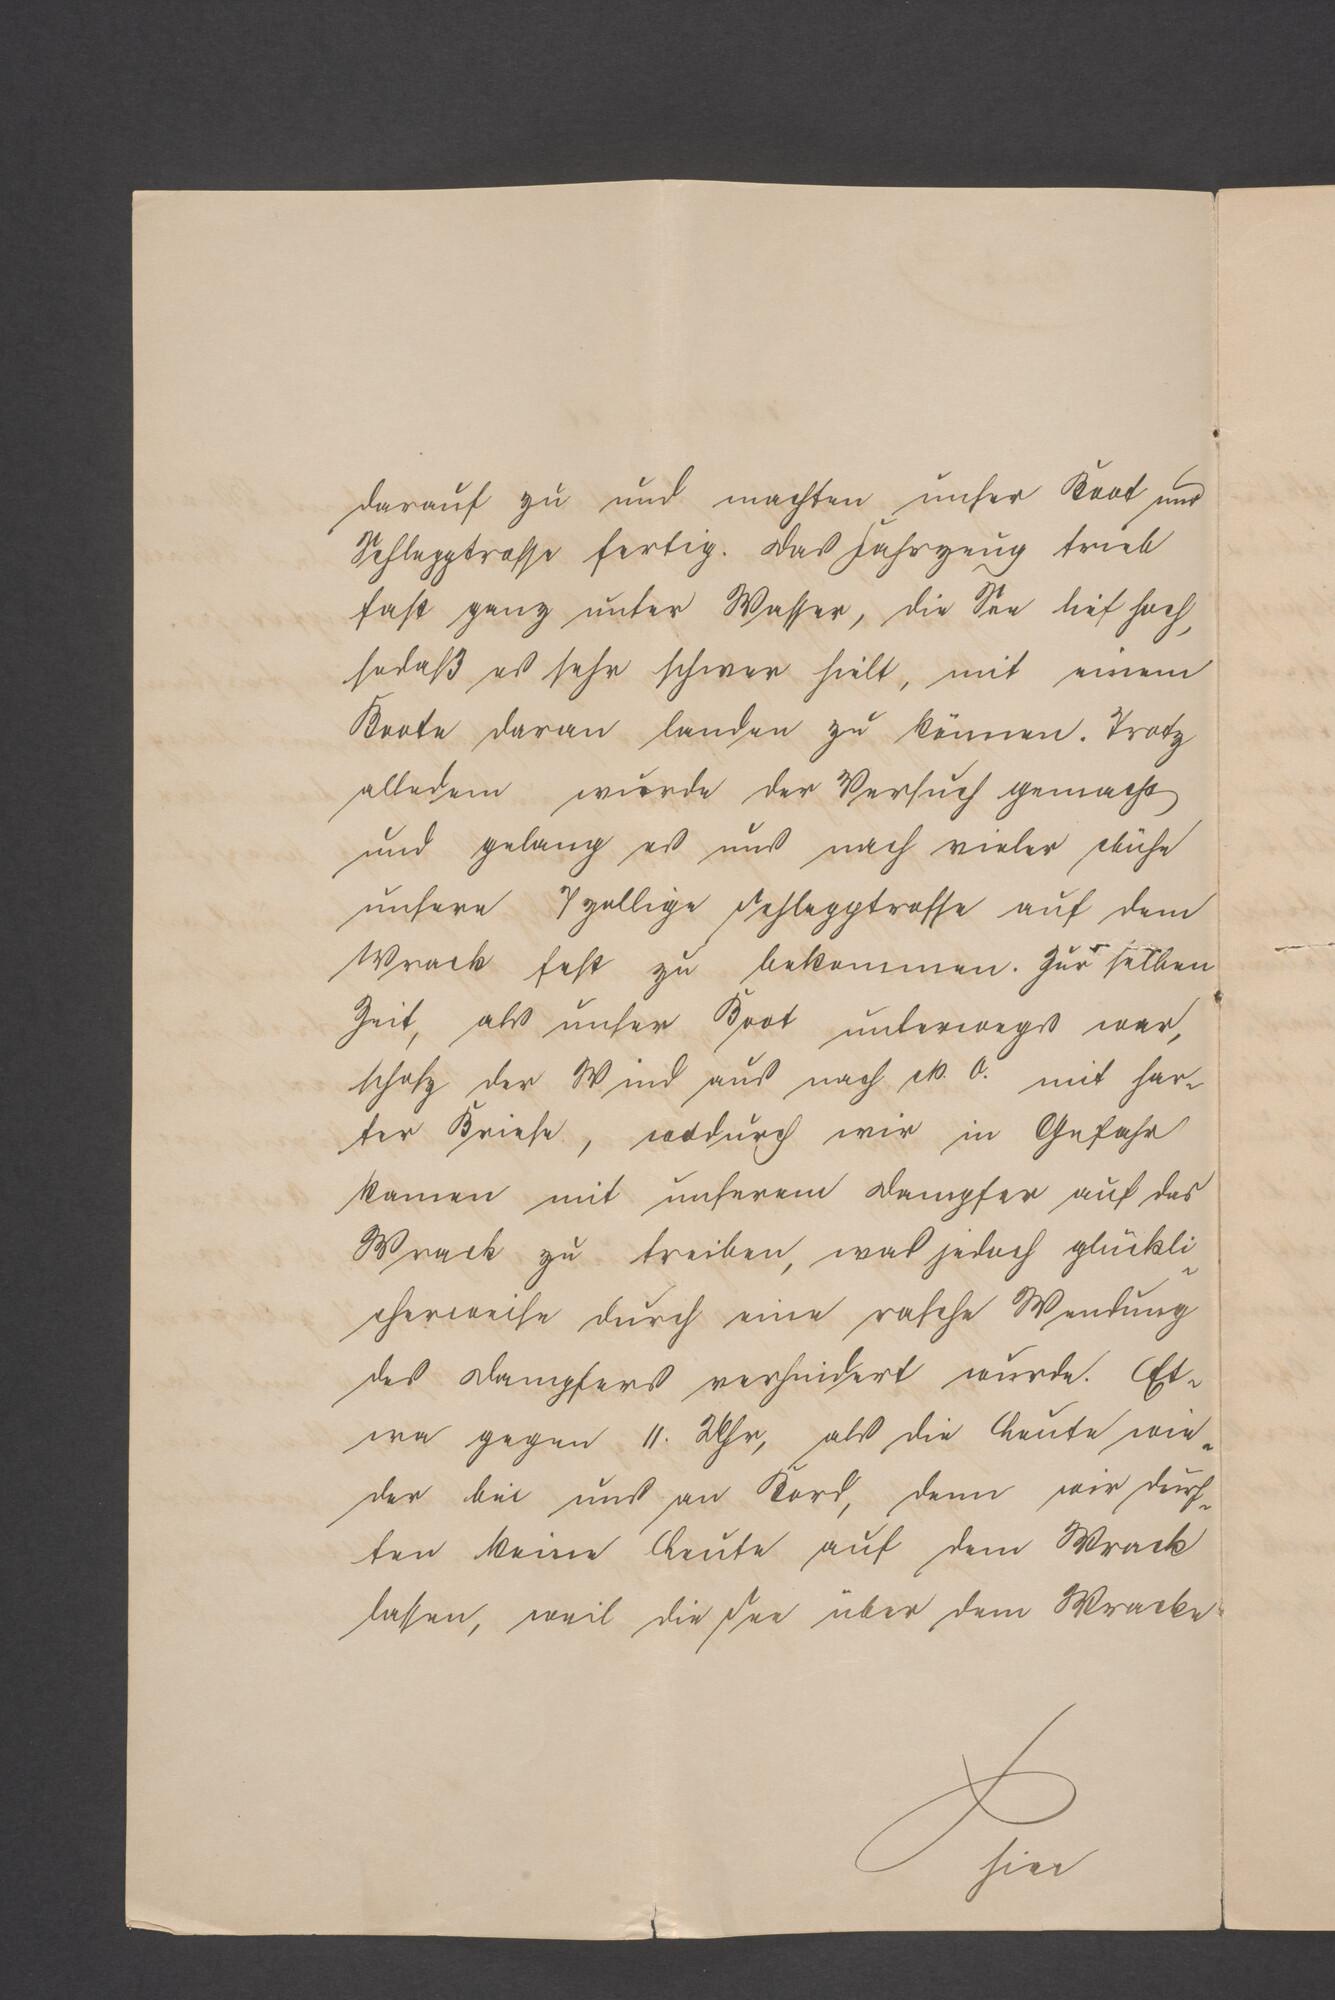 darauf zu und machten unser Boot und
Schlepptrosse fertig. Das Fahrzeug trieb
fast ganz unter Wasser, die See lief hoch,
sodaß es sehr schwer hielt, mit einem
Boote daran landen zu können. Trotz
alledem wurde der Versuch gemacht
und gelang es uns nach vieler Mühe
unsere 7 zollige Schlepptrosse auf dem
Wrack fest zu bekommen. Zur selben
Zeit, als unser Boot unterwegs war,
schoß der Wind aus nach N. O. mit har-
ter Briese, wodurch wir in Gefahr
kamen mit unserem Dampfer auf das
Wrack zu treiben, was jedoch glückli-
cherweise durch eine rasche Wendung
des Dampfers verhindert wurde. Et-
wa gegen 11. Uhr, als die Leute wie-
der bei uns an Bord, denn wir durf-
ten keine Leute auf dem Wrack
lassen, weil die See über dem Wracke
hier